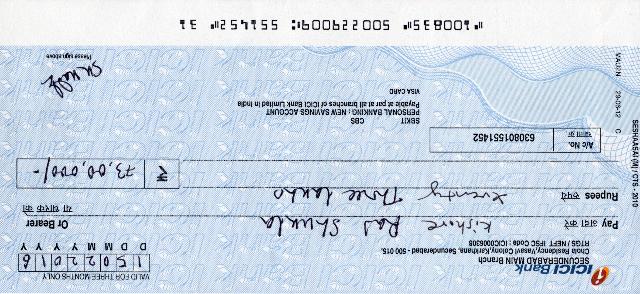 ICICI Bank
SECUNDERABAD MAIN Branch
Residency, Vasavy Colony, Karkhana, Secunderabad - 500 015.
RTGS / NEFT IFSC Code : ICIC0006308
VALID FOR THREE MONTHS ONLY
1 5 0 2 2 0 1 6
D D M M Y Y Y Y
Pay अदा करें Kishore Raj Shukla Or Bearer या धारक को
Rupees रुपये Seventy Three Lakhs
₹ 73,00,000/-
A/c No. 630801551452
SEKIT CBS
PERSONAL BANKING - NEW SAVINGS ACCOUNT
Payable at par at all branches of ICICI Bank Limited in India
VISA CARD
Please sign above
SESHAASAI (H) / CTS - 2010
⑈100835⑈ 500229009⑆ 551452⑈ 31